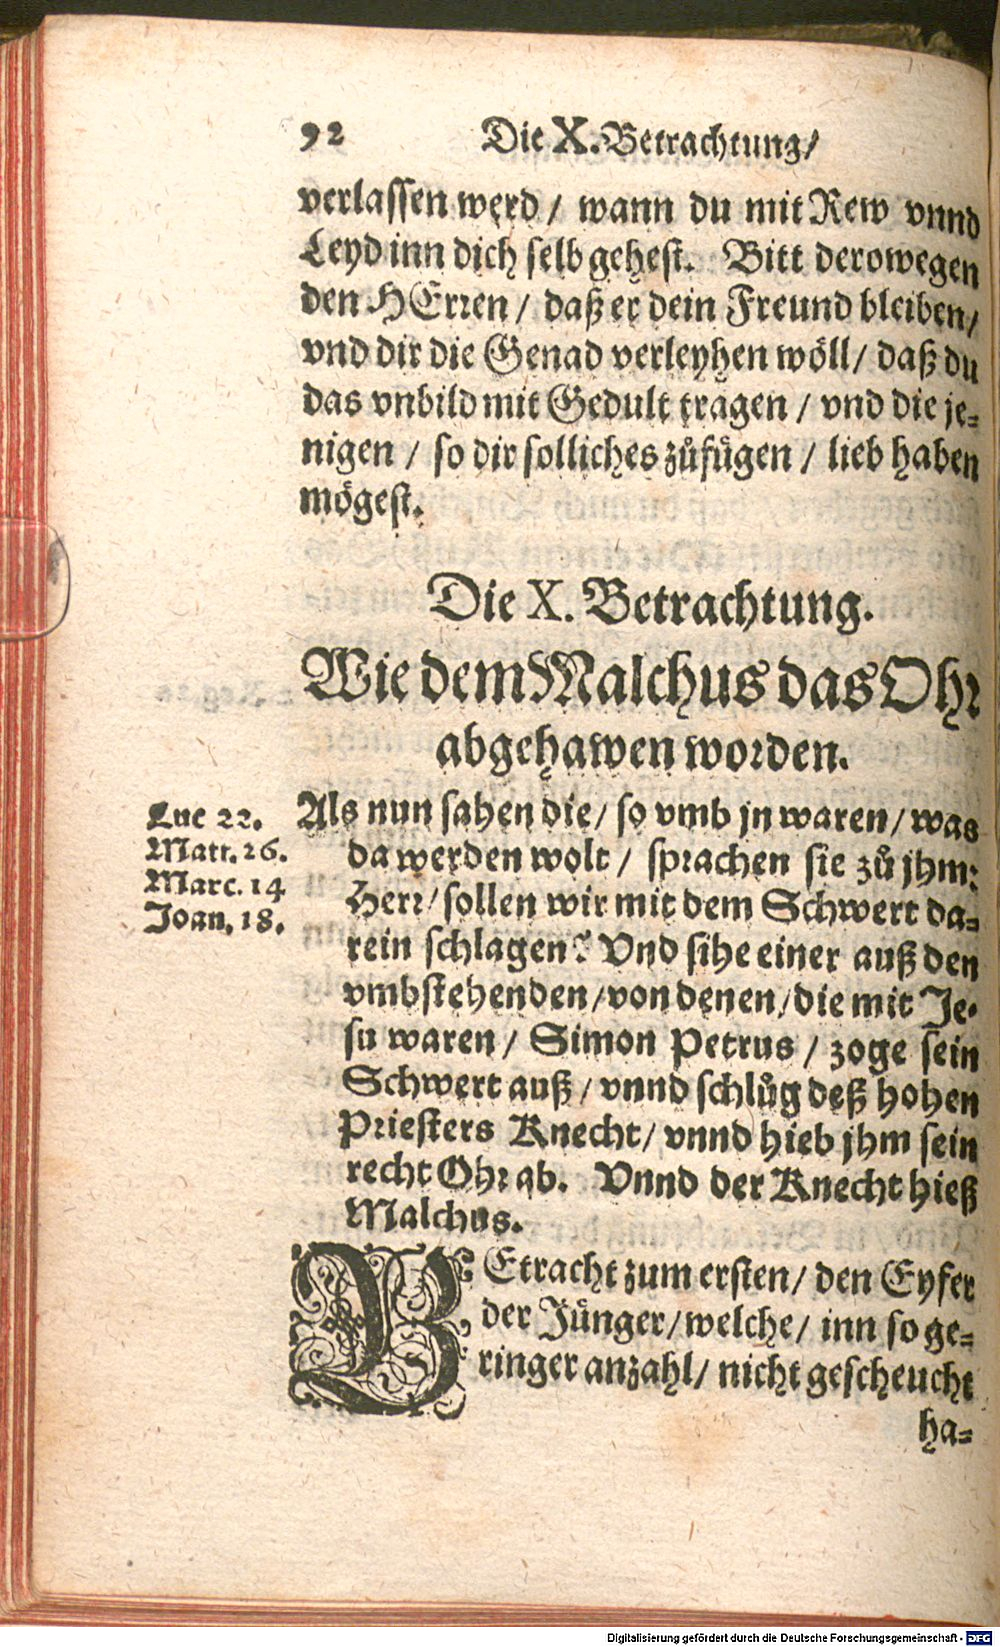 92 Die X. Betrachtung/
verlassen werd / wann du mit Rew vnnd
Leyd inn dich selb gehest. Bitt derowegen
den HErren / daß er dein Freund bleiben/
vnd dir die Genad verleyhen wöll/ daß du
das vnbild mit Gedult tragen / vnd die je-
nigen / so dir solliches zůfügen / lieb haben
mögest.
Die X. Betrachtung.
Wie dem Malchus das Ohr
abgehawen worden.
Luc 22.
Matt. 26.
Marc. 14
Joan. 18.
Als nun sahen die/ so vmb jn waren/ was
da werden wolt / sprachen sie zů jhm:
Herr/ sollen wir mit dem Schwert da-
rein schlagen? Vnd sihe einer auß den
vmbstehenden/ von denen/ die mit Je-
su waren / Simon Petrus / zoge sein
Schwert auß / vnnd schlůg deß hohen
Priesters Knecht/ vnnd hieb jhm sein
recht Ohr ab. Vnnd der Knecht hieß
Malchus.
BEtracht zum ersten/ den Eyfer
der Jünger/ welche/ inn so ge-
ringer anzahl/ nicht gescheucht
ha-
Digitalisierung gefördert durch die Deutsche Forschungsgemeinschaft - DFG